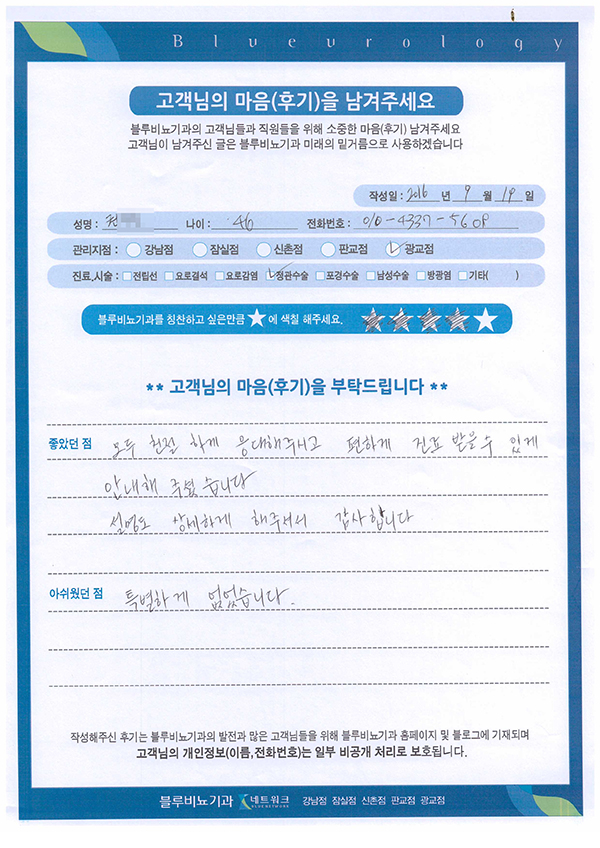 Blueurology
고객님의 마음(후기)을 남겨주세요
블루비뇨기과의 고객님들과 직원들을 위해 소중한 마음(후기) 남겨주세요
고객님이 남겨주신 글은 블루비뇨기과 미래의 밑거름으로 사용하겠습니다
작성일 : 2016 년 9 월 19 일
성명 : 전 나이 : 46 전화번호 : 010-4337-5608
관리지점 : 강남점 잠실점 신촌점 판교점 광교점
진료.시술 : 전립선 요로결석 요로감염 정관수술 포경수술 남성수술 방광염 기타( )
블루비뇨기과를 칭찬하고 싶은만큼 ★에 색칠 해주세요. ★★★★★
** 고객님의 마음(후기)을 부탁드립니다 **
좋았던 점 모두 친절 하게 응대해주시고 편하게 진료 받을수 있게
안내해 주셨습니다
설명도 상세하게 해주셔서 감사합니다
아쉬웠던 점 특별하게 없었습니다.
작성해주신 후기는 블루비뇨기과의 발전과 많은 고객님들을 위해 블루비뇨기과 홈페이지 및 블로그에 기재되며
고객님의 개인정보(이름,전화번호)는 일부 비공개 처리로 보호됩니다.
블루비뇨기과 네트워크 BLUE NETWORK 강남점 잠실점 신촌점 판교점 광교점